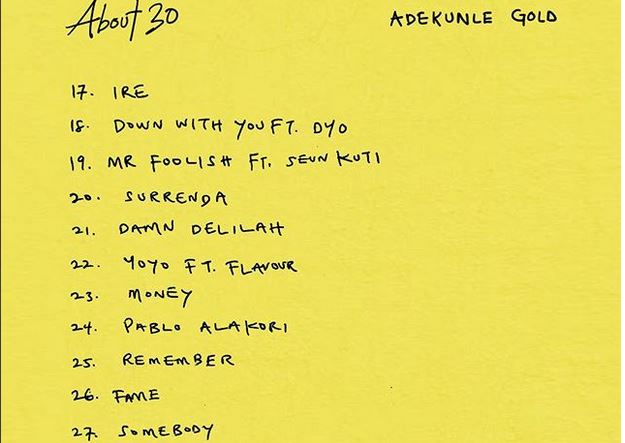 About 30 ADEKUNLE GOLD
17. IRE
18. DOWN WITH YOU FT. DYO
19. MR FOOLISH FT. SEUN KUTI
20. SURRENDA
21. DAMN DELILAH
22. YOYO FT. FLAVOUR
23. MONEY
24. PABLO ALAKORI
25. REMEMBER
26. FAME
27. SOMEBODY